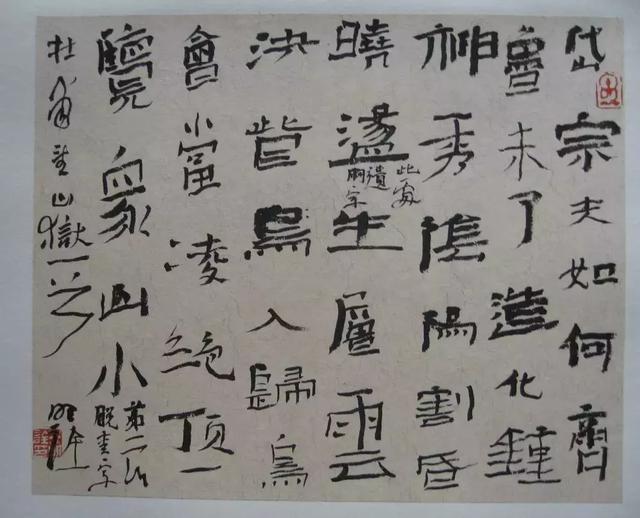 岱宗夫如何齊
魯未了造化鍾
神秀陰陽割昏
曉盪生層雲
此處
遺
胸字
決眥鳥入歸鳥
會當凌絕頂一
覽眾山小
第二行
脫青字
杜甫望山嶽一首